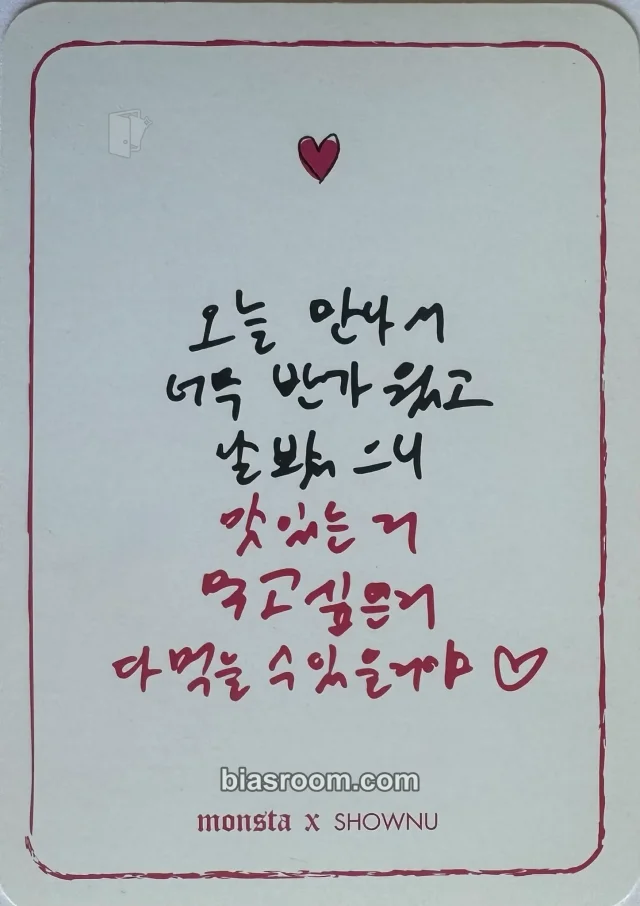 오늘 만나서
너무 반가웠고
날 봤으니
맛있는 거
먹고 싶은 거
다 먹을 수 있을 거야
biasroom.com
monsta x SHOWNU